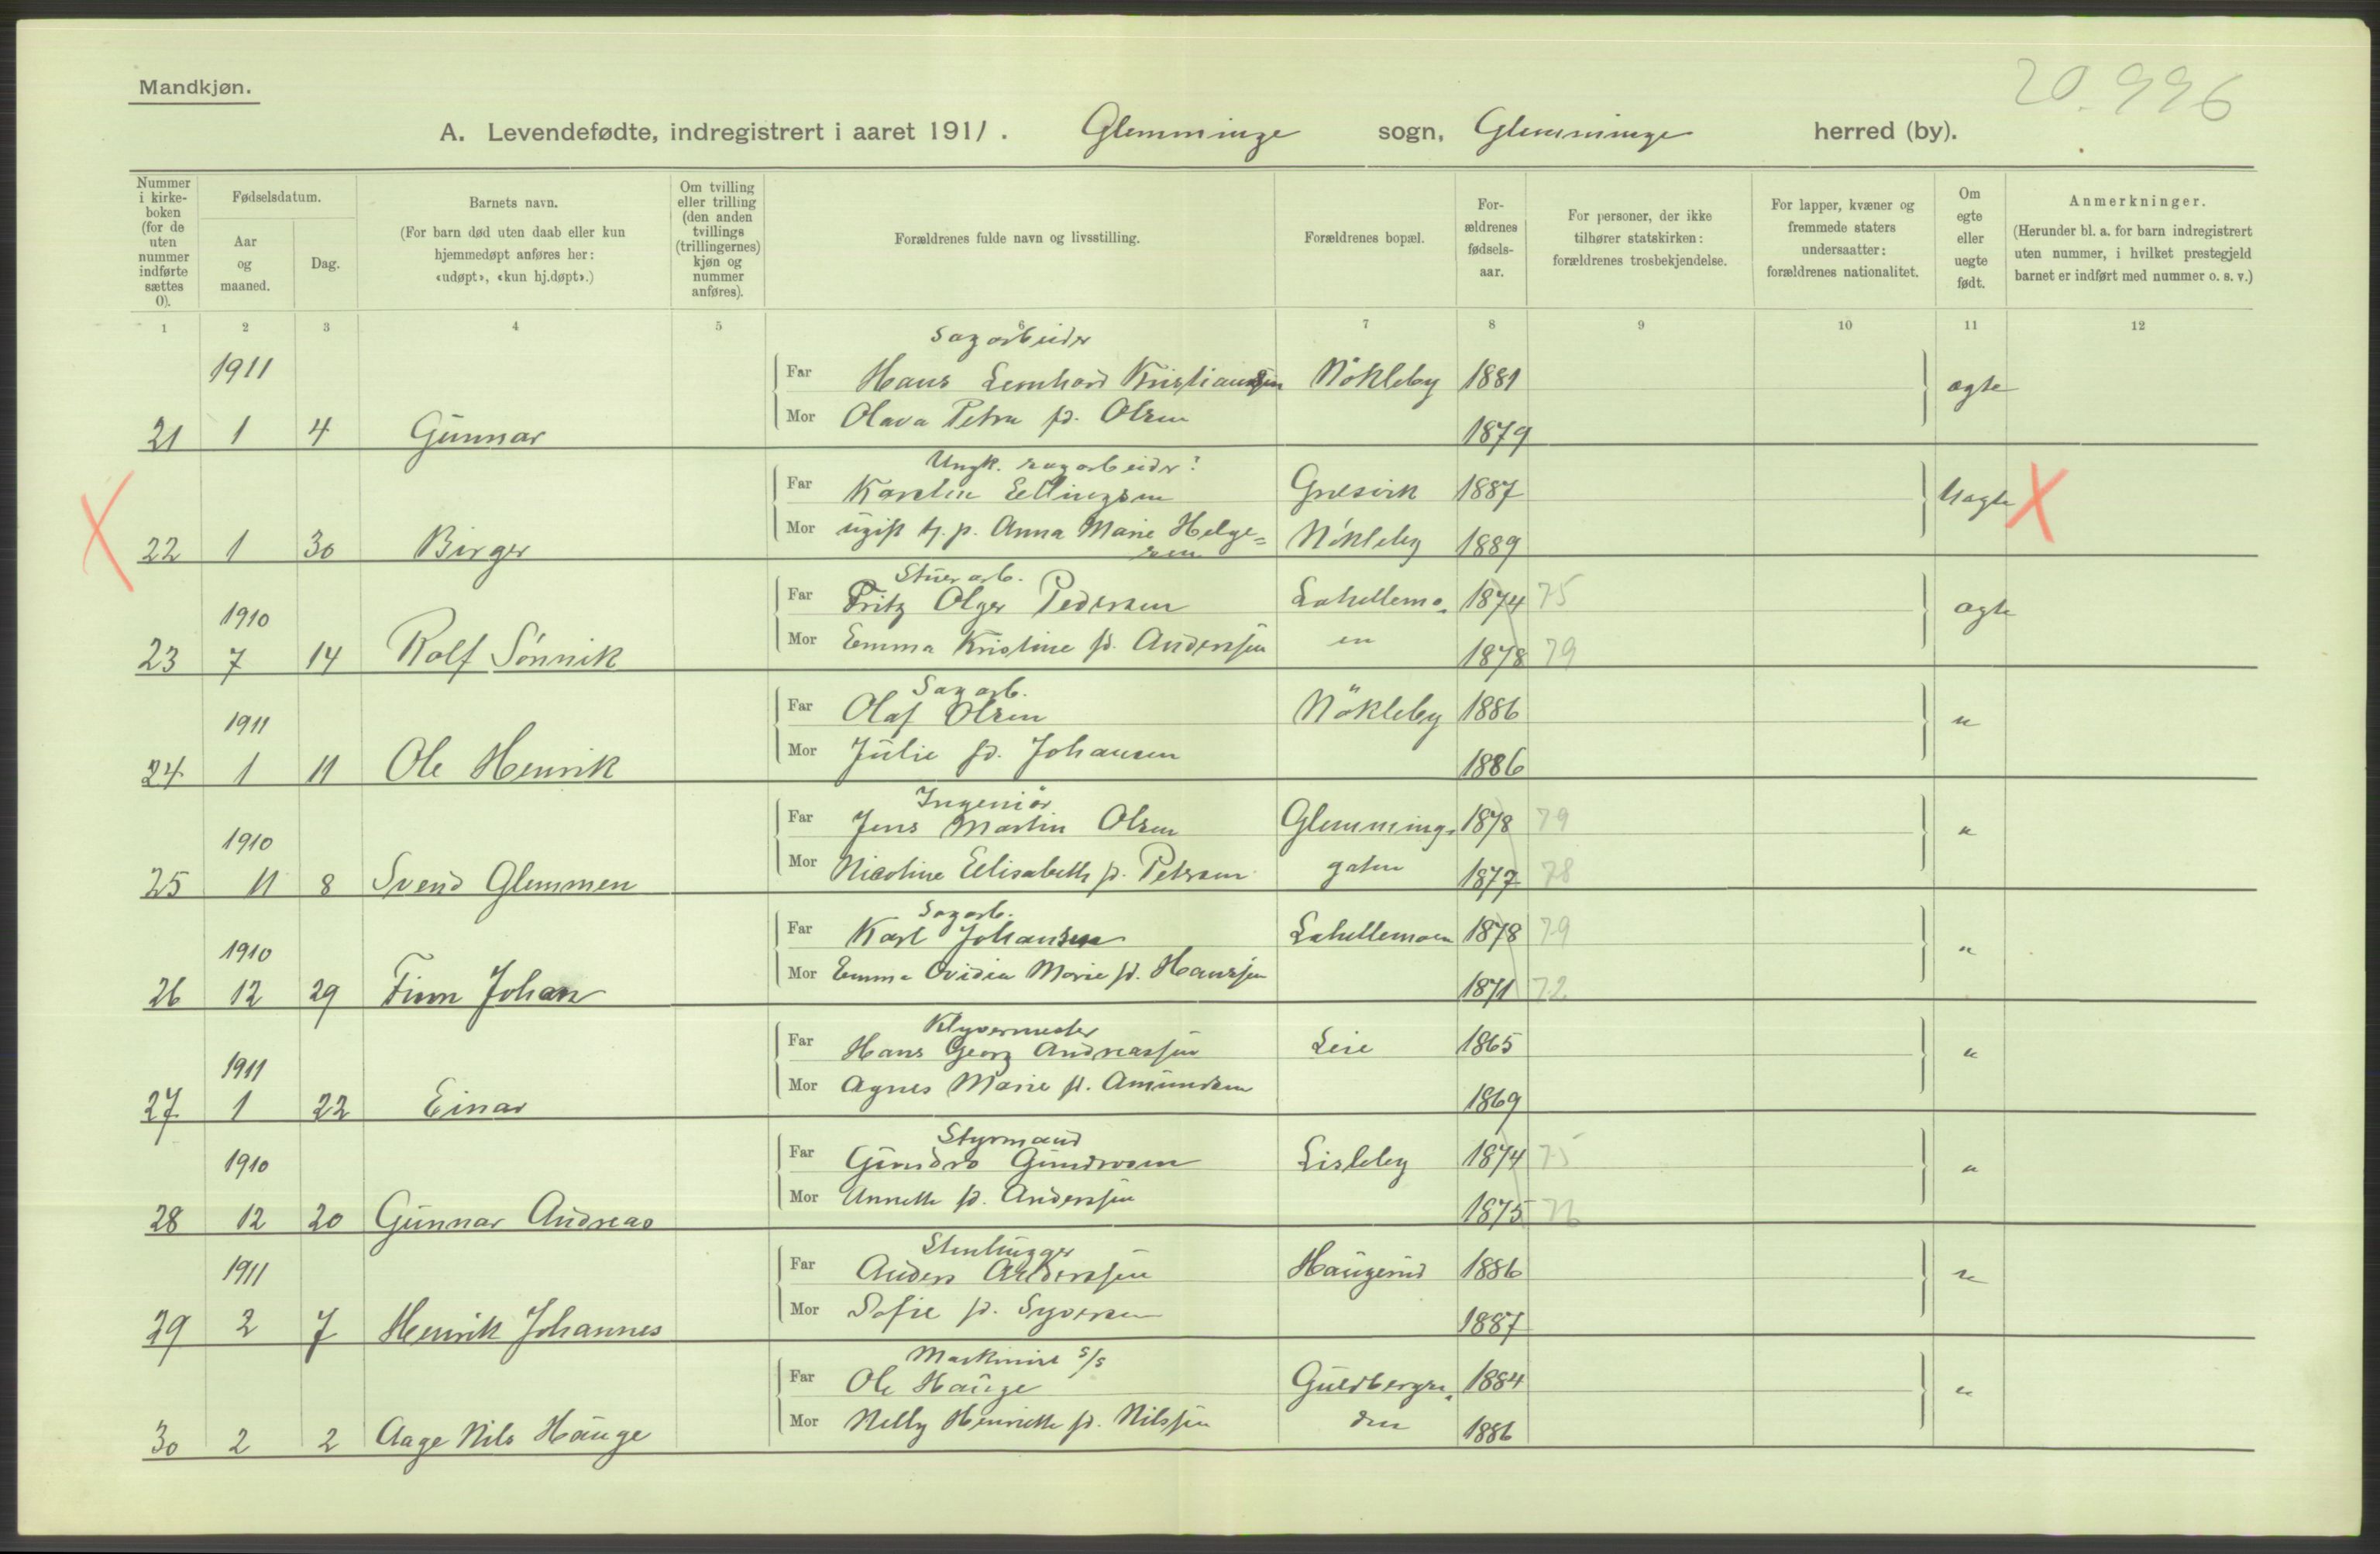 Mandkjøn.
20.996
A. Levendefødte, indregistrert i aaret 1911. Glemminge sogn, Glemminge herred (by).
Nummer i kirke-boken (for de uten nummer indførte sættes 0).
Fødselsdatum.
Aar og maaned.
Dag.
Barnets navn.
(For barn død uten daab eller kun hjemmedøpt anføres her: «udøpt», «kun hj.døpt».)
Om tvilling eller trilling (den anden tvillings (trillingernes) kjøn og nummer anføres).
Forældrenes fulde navn og livsstilling.
Forældrenes bopæl.
For-ældrenes fødsels-aar.
For personer, der ikke tilhører statskirken: forældrenes trosbekjendelse.
For lapper, kvæner og fremmede staters undersaatter: forældrenes nationalitet.
Om egte eller uegte født.
Anmerkninger.
(Herunder bl. a. for barn indregistrert uten nummer, i hvilket prestegjeld barnet er indført med nummer o. s. v.)
1 2 3 4 5 6 7 8 9 10 11 12
Sagarbeider
1911 Far Hans Lernhard Kristiansen Nökleby 1881 ægte
21 1 4 Gunnar Mor Olava Petra fd. Olsen 1879
Ungk. sagarbeider:
X Far Karsten Ellingsen Gresvik 1887 Uægte X
22 1 30 Birger Mor ugift tj. p. Anna Marie Helge= Nökleby 1889
sen
Stuerarb.
1910 Far Fritz Olger Pedersen Lahellemo- 1874 75 ægte
23 7 14 Rolf Sönnik Mor Emma Kristine fd. Anderssen en 1878 79
Sagarb.
1911 Far Olaf Olsen Nökleby 1886 "
24 1 11 Ole Henrik Mor Julie fd. Johansen 1886
Ingeniör
1910 Far Jens Martin Olsen Glemming- 1878 79 "
25 11 8 Svend Glemmen Mor Nicoline Elisabeth fd. Petersen gaten 1877 78
Sagarb.
1910 Far Karl Johansen Lahellemoen 1878 79 "
26 12 29 Finn Johan Mor Emma Ovidia Marie fd. Hanssen 1871 72
Klyvermester
1911 Far Hans Georg Andreassen Leie 1865 "
27 1 22 Einar Mor Agnes Marie fd. Amundsen 1869
Styrmand
1910 Far Gundro Gundrosen Lisleby 1874 75 "
28 12 20 Gunnar Andreas Mor Annette fd. Anderssen 1875 76
Stenhugger
1911 Far Anders Anderssen Haugerud 1886 "
29 2 7 Henrik Johannes Mor Sofie fd. Syversen 1887
Maskinist s/s
Far Ole Hauge Guldbergsi- 1884 "
30 2 2 Aage Nils Hauge Mor Nelly Henriette fd. Nilssen den 1886